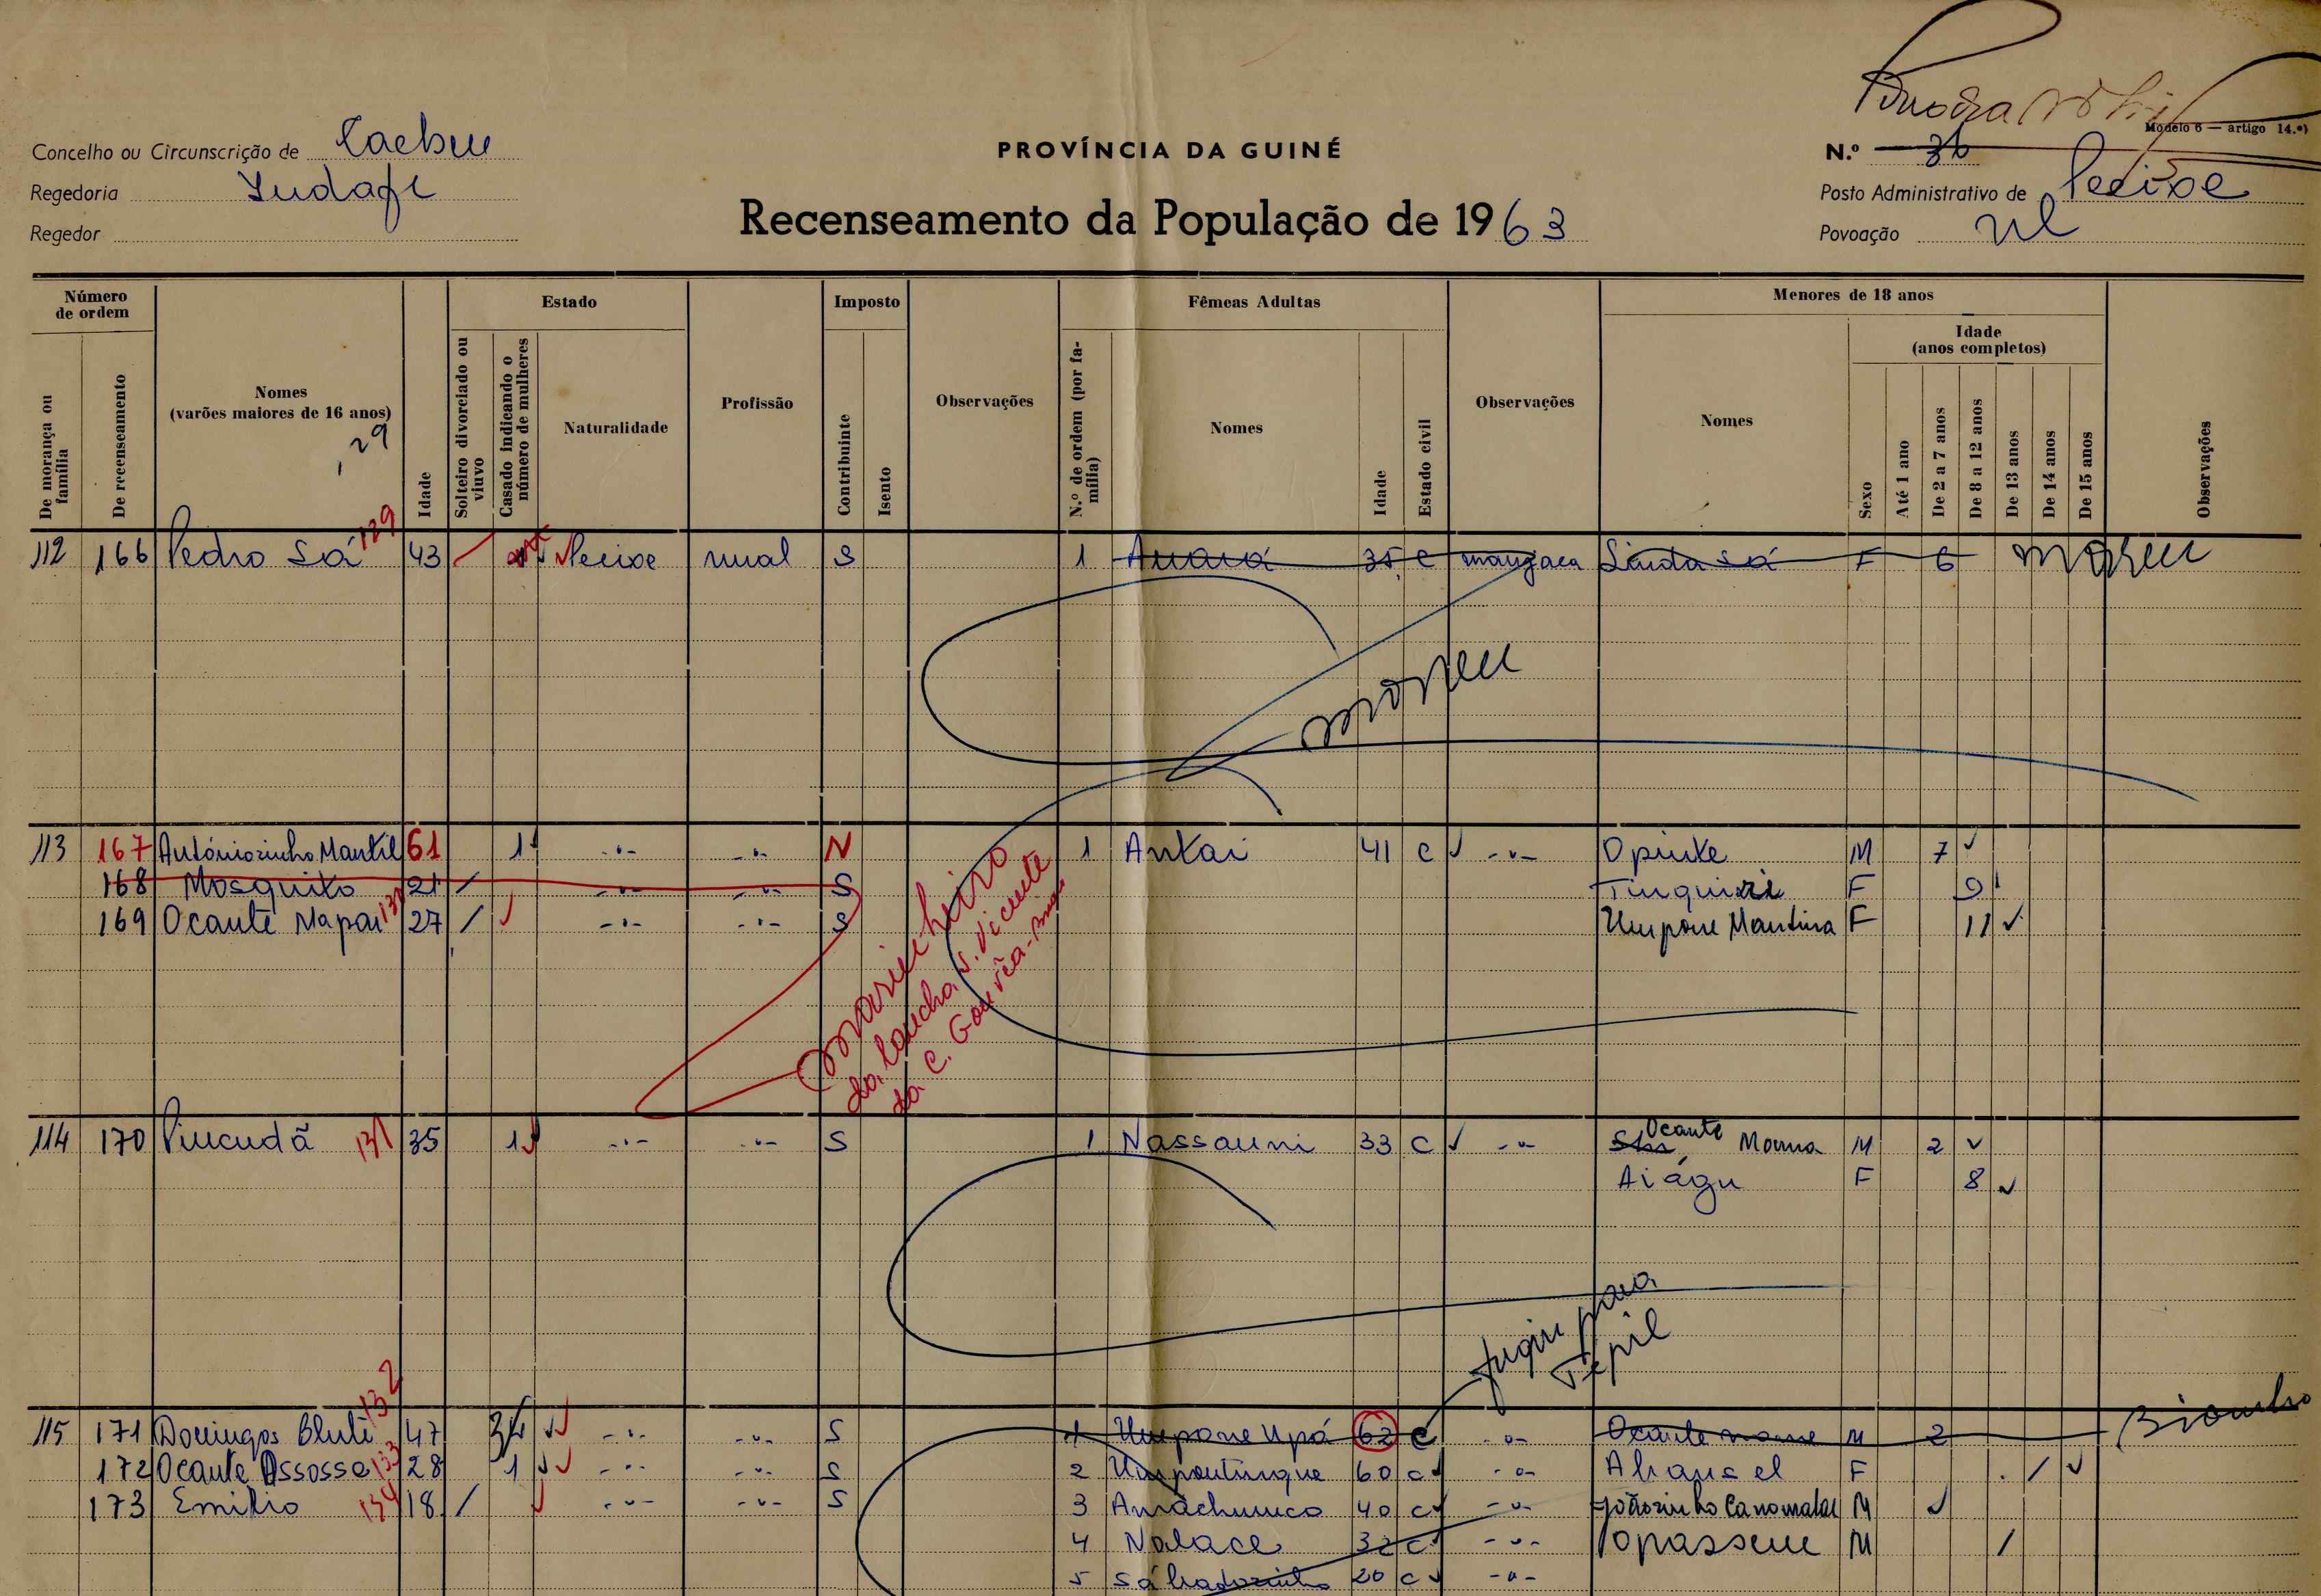 Modelo 6 — artigo 14.º)
Concelho ou Circunscrição de Cacheu
PROVÍNCIA DA GUINÉ
N.º 36
Regedoria
Posto Administrativo de Pecixe
Recenseamento da População de 1963
Regedor
Povoação
Número de ordem
Estado
Imposto
Fêmeas Adultas
Menores de 18 anos
Idade
(anos completos)
De morança ou família
De recenseamento
Nomes
(varões maiores de 16 anos)
29
Idade
Solteiro divorciado ou viuvo
Casado indicando o número de mulheres
Naturalidade
Profissão
Contribuinte
Isento
Observações
N.º de ordem (por família)
Nomes
Idade
Estado civil
Observações
Nomes
Sexo
Até 1 ano
De 2 a 7 anos
De 8 a 12 anos
De 13 anos
De 14 anos
De 15 anos
Observações
112 166 Pedro Sá 129 43 Pecixe rural S 1 35 C manjaca Linda Sá F 6 morreu
morreu
113 167 Antóniozinho Mantil 61 1 -"- -"- N 1 Antai 41 C -"- Opinte M 7
168 Mosquito 21 / -"- -"- S Tinquiri F 9
169 Ocante Mapai 130 27 / -"- -"- S Umpone Mantina F 11
marinheiro
da lancha S. Vicente
da C. Gouvêa
114 170 Pincudã 131 35 1 -"- -"- S 1 Nassauni 33 C -"- Ocante Moma M 2
Aiágu F 8
fugiu para
Tepil
115 171 Domingos 132 47 -"- -"- S 1 Umpone Upá 62 C -"- Ocante M 2 Biombo
172 Ocante Ossosso 133 28 1 -"- -"- S 2 Umpontinque 60 C -"- F /
173 Emilio 134 18 / -"- -"- S 3 Amachunco 40 C -"- Joãozinho M
4 Nalace 32 C -"- Opassene M /
5 20 C -"-